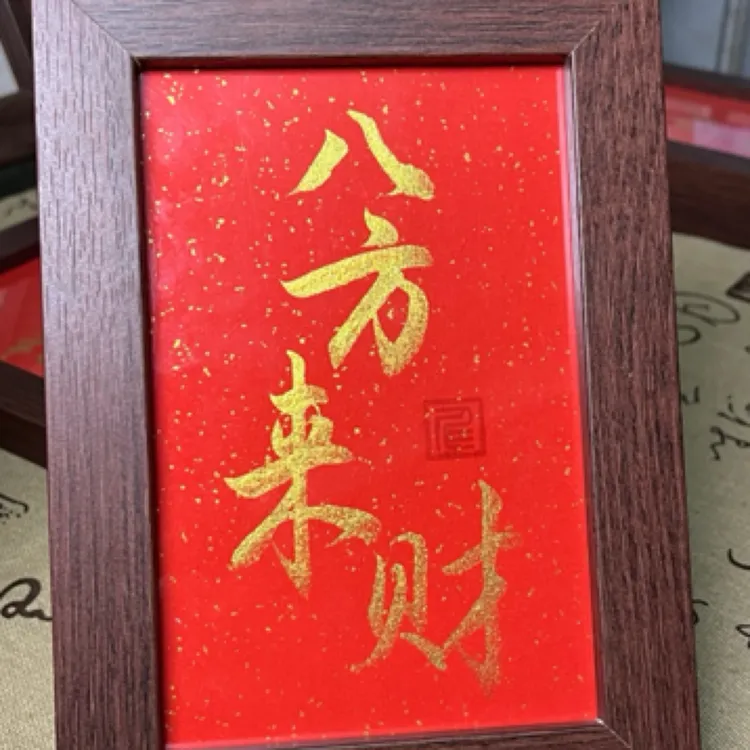 八方来财